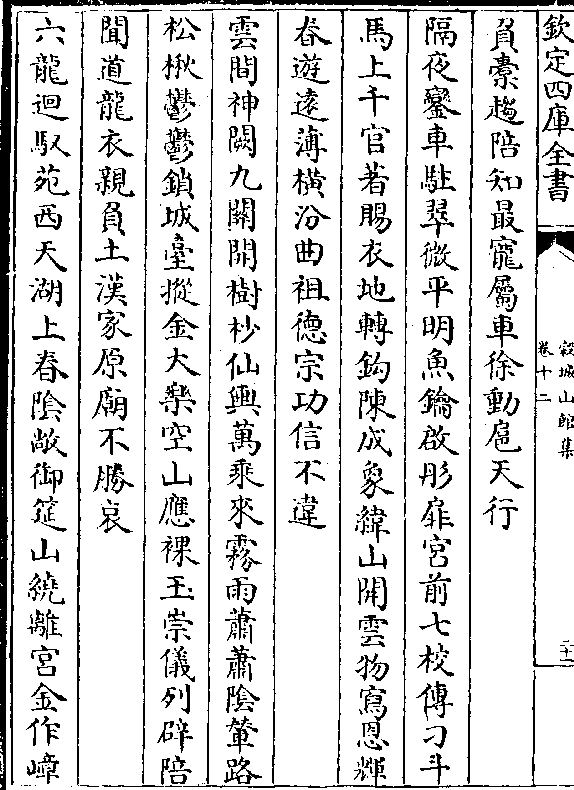 欽定四庫全書
穀城山館集
卷十二
二十一
負橐趨陪知最寵屬車徐動扈天行
隔夜鑾車駐翠微平明魚鑰啟彤扉宮前七校傳刁斗
馬上千官著賜衣地轉鈎陳成象緯山開雲物寫恩輝
春遊遠薄橫汾曲祖德宗功信不違
雲間神闕九關開樹杪仙輿萬乘來霧雨蕭蕭陰輦路
松楸鬱鬱鎖城臺摐金大樂空山應祼玉崇儀列辟陪
聞道龍衣親負土漢家原廟不勝哀
六龍迴馭苑西天湖上春陰敞御筵山繞離宮金作嶂